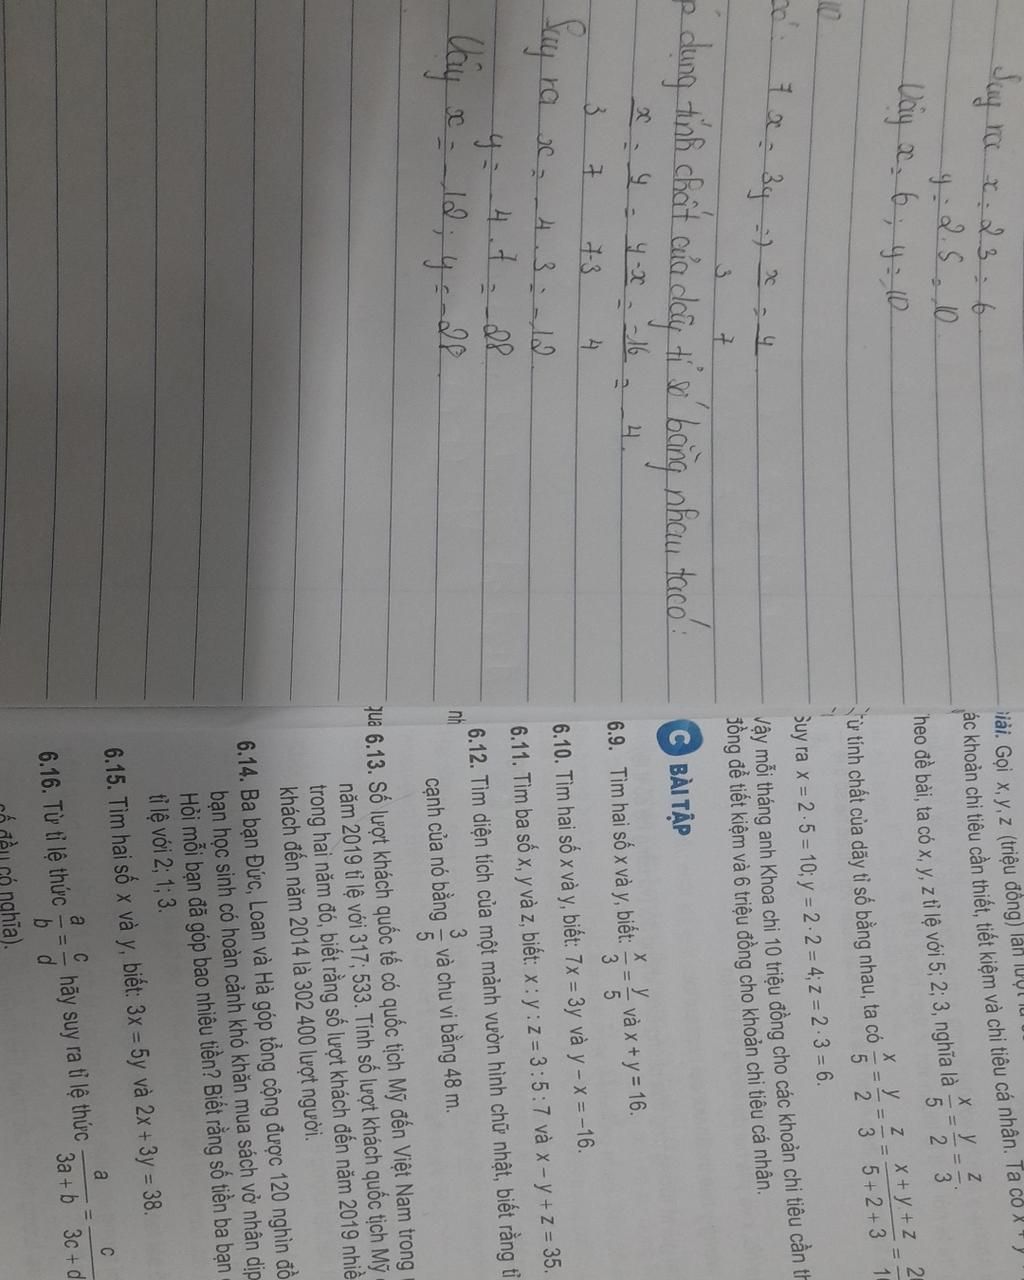 Suy ra x = 2 3 = 6
y = 2.5 = 10
Vậy x = 6 ; y = 10
10
có : 7x = 3y => x/3 = y/7
p dụng tính chất của dãy tỉ số bằng nhau ta có :
x/3 = y/7 = y-x/7-3 = -16/4 = -4.
Suy ra x = -4.3 = -12
y = -4.7 = -28
Vậy x = -12 ; y = -28
iải. Gọi x, y, z (triệu đồng) lần lượt
ác khoản chi tiêu cần thiết, tiết kiệm và chi tiêu cá nhân. Ta có x + y
heo đề bài, ta có x, y, z tỉ lệ với 5; 2; 3, nghĩa là x/5 = y/2 = z/3.
Từ tính chất của dãy tỉ số bằng nhau, ta có x/5 = y/2 = z/3 = x + y + z/5 + 2 + 3 =
Suy ra x = 2 · 5 = 10; y = 2 · 2 = 4; z = 2 · 3 = 6.
Vậy mỗi tháng anh Khoa chi 10 triệu đồng cho các khoản chi tiêu cần th
đồng để tiết kiệm và 6 triệu đồng cho khoản chi tiêu cá nhân.
C BÀI TẬP
6.9. Tìm hai số x và y, biết: x/3 = y/5 và x + y = 16.
6.10. Tìm hai số x và y, biết: 7x = 3y và y – x = –16.
6.11. Tìm ba số x, y và z, biết: x : y : z = 3 : 5 : 7 và x – y + z = 35.
6.12. Tìm diện tích của một mảnh vườn hình chữ nhật, biết rằng tỉ
nh
cạnh của nó bằng 3/5 và chu vi bằng 48 m.
qua 6.13. Số lượt khách quốc tế có quốc tịch Mỹ đến Việt Nam trong
năm 2019 tỉ lệ với 317; 533. Tính số lượt khách quốc tịch Mỹ
trong hai năm đó, biết rằng số lượt khách đến năm 2019 nhiề
khách đến năm 2014 là 302 400 lượt người.
6.14. Ba bạn Đức, Loan và Hà góp tổng cộng được 120 nghìn đồ
bạn học sinh có hoàn cảnh khó khăn mua sách vở nhân dịp
Hỏi mỗi bạn đã góp bao nhiêu tiền? Biết rằng số tiền ba bạn
tỉ lệ với 2; 1; 3.
6.15. Tìm hai số x và y, biết: 3x = 5y và 2x + 3y = 38.
6.16. Từ tỉ lệ thức a/b = c/d hãy suy ra tỉ lệ thức a/3a + b = c/3c + d
số đều có nghĩa).